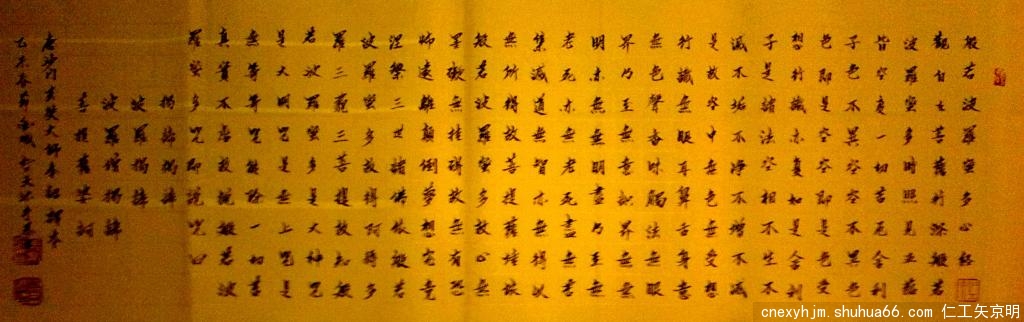 般若波羅蜜多心經
觀自在菩薩行深般若
波羅蜜多時照見五蘊
皆空度一切苦厄舍利
子色不異空空不異色
色即是空空即是色受
想行識亦復如是舍利
子是諸法空相不生不
滅不垢不淨不增不減
是故空中無色無受想
行識無眼耳鼻舌身意
無色聲香味觸法無眼
界乃至無意識界無無
明亦無無明盡乃至無
老死亦無老死盡無苦
集滅道無智亦無得以
無所得故菩提薩埵依
般若波羅蜜多故心無
罣礙無罣礙故無有恐
怖遠離顛倒夢想究竟
涅槃三世諸佛依般若
波羅蜜多故得阿耨多
羅三藐三菩提故知般
若波羅蜜多是大神咒
是大明咒是無上咒是
無等等咒能除一切苦
真實不虛故說般若波
羅蜜多咒即說咒曰
揭諦揭諦
波羅揭諦
波羅僧揭諦
菩提薩婆訶
唐沙門玄奘大師奉詔譯本
乙未春節
cnexyhjm.shuhua66.com 仁工矢京明